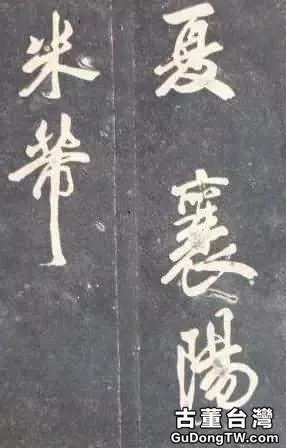 夏襄陽
米芾
古董台灣
GuDongTW.com